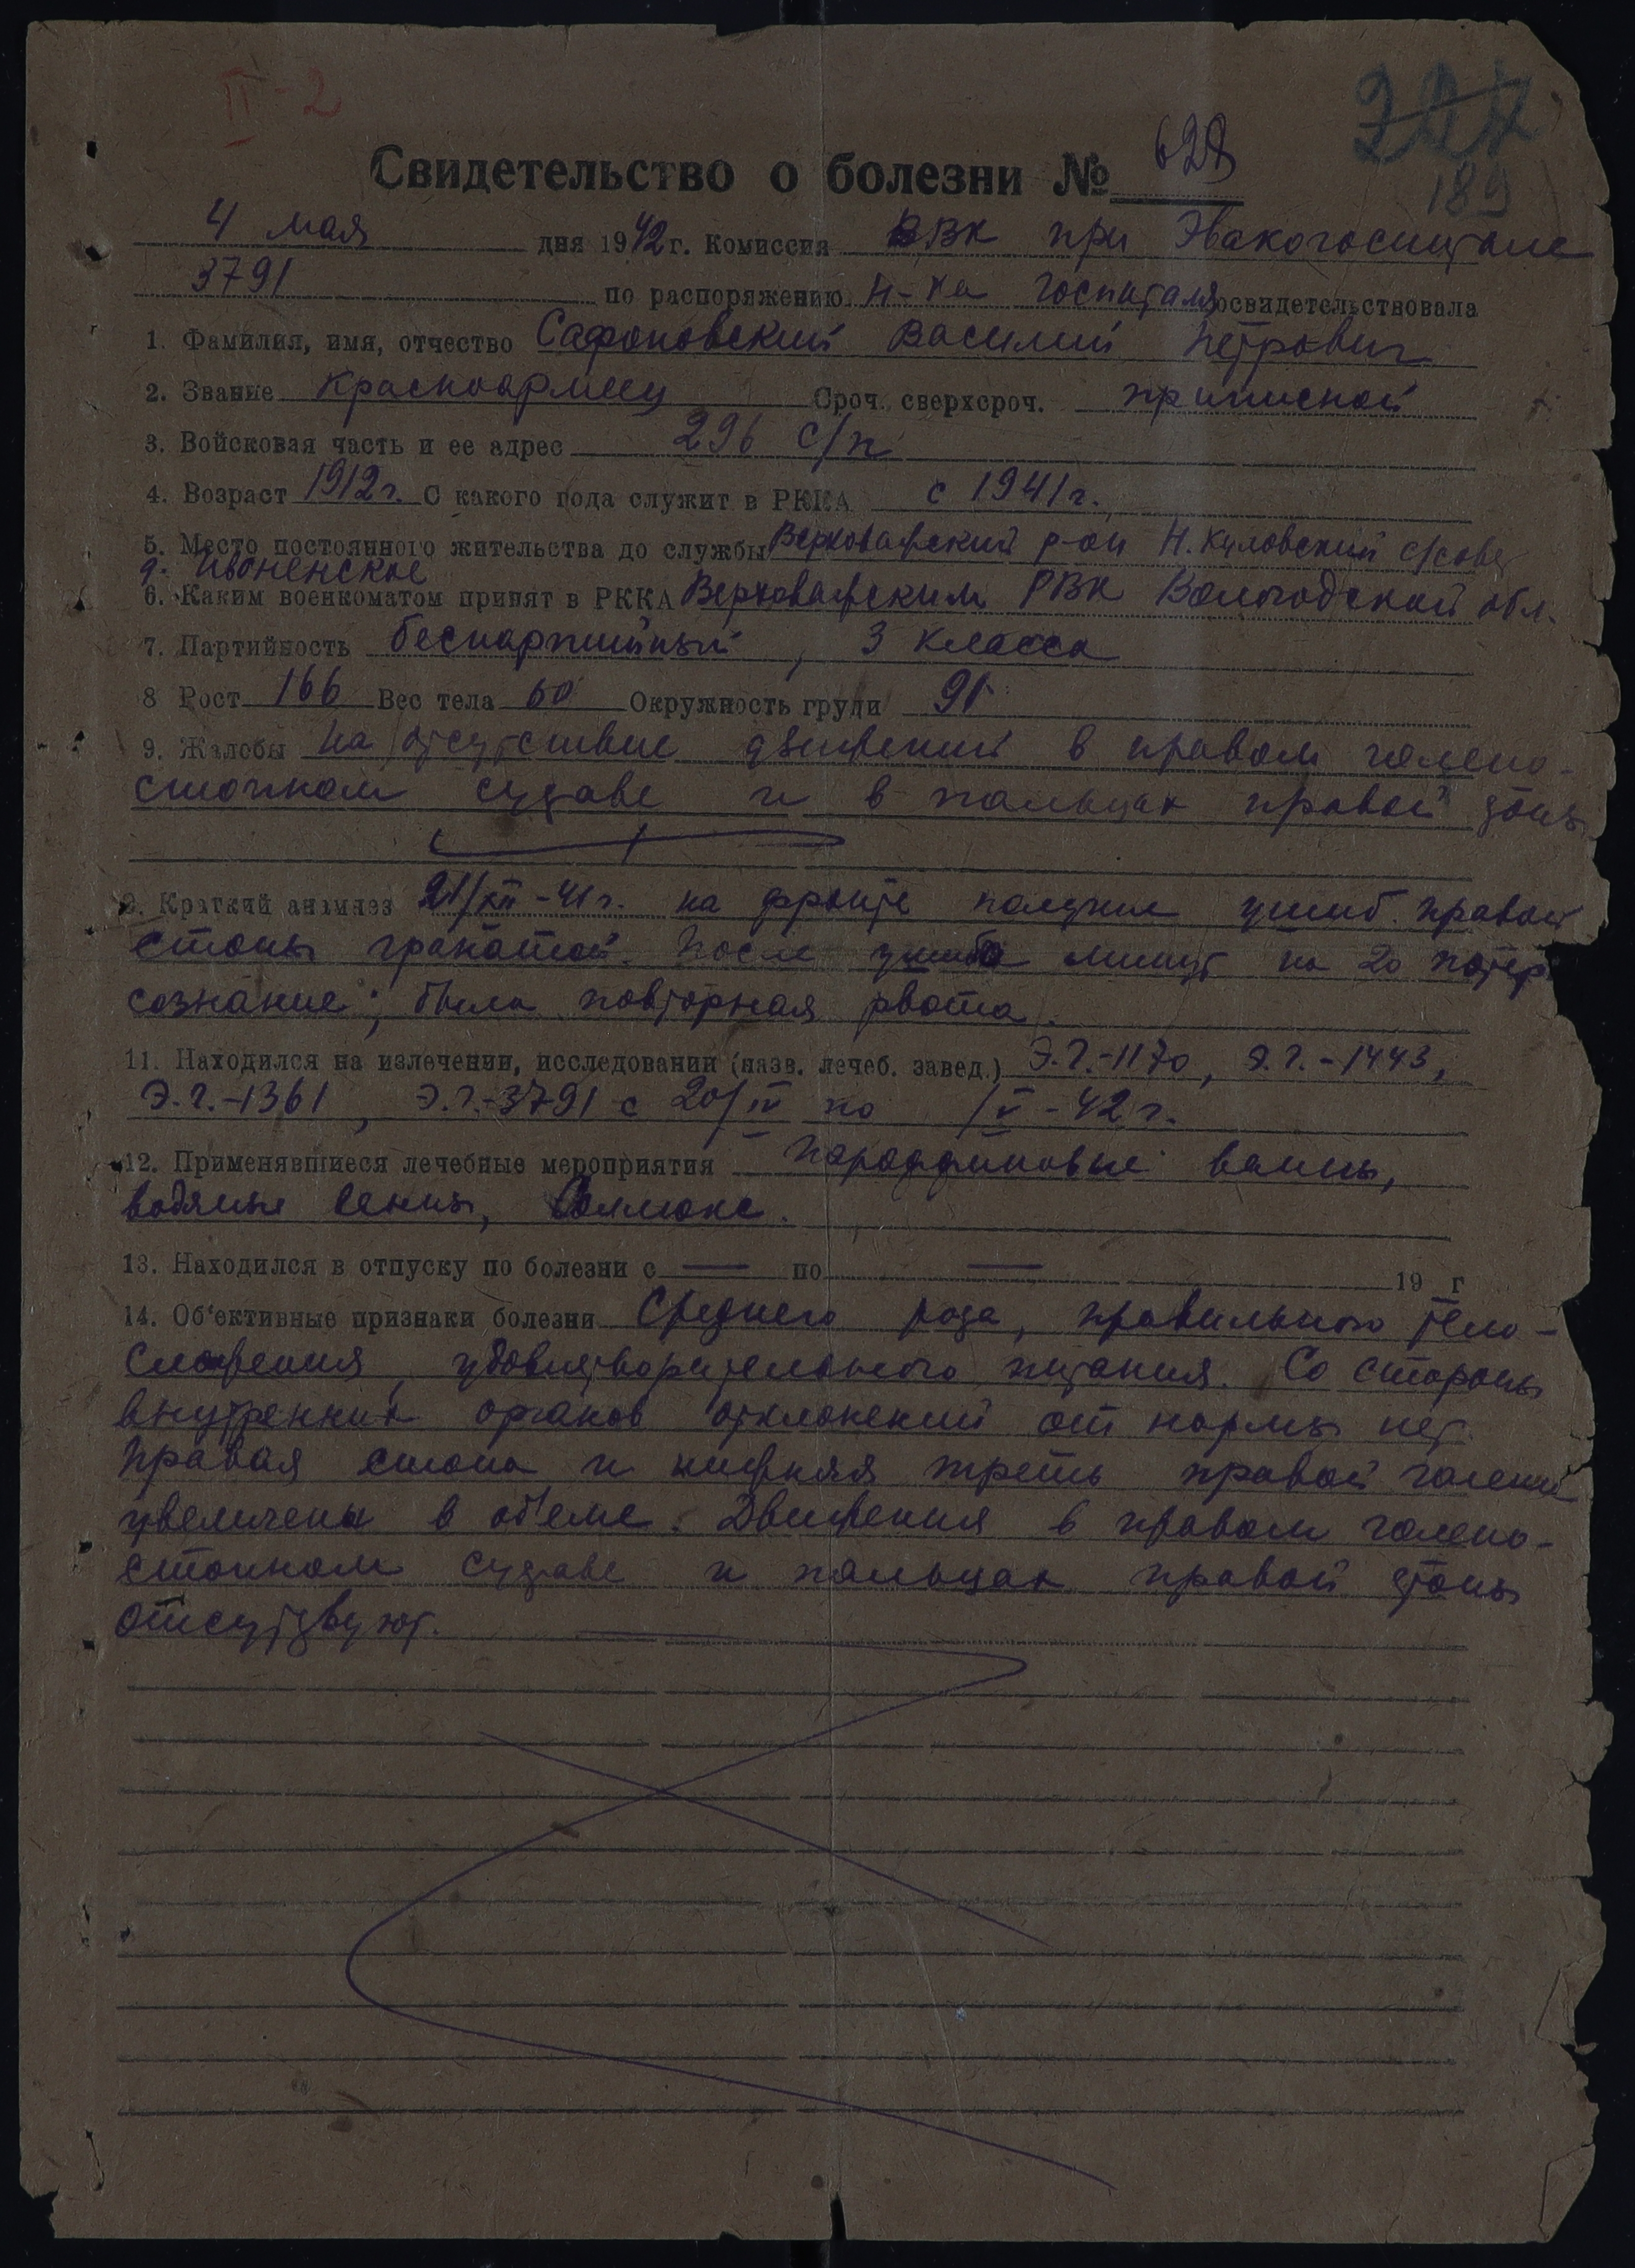 II-2
227
189
Свидетельство о болезни № 628
4 мая дня 1942 г. Комиссия ВВК при Эвакогоспитале
3791 по распоряжению Н-ка госпиталя освидетельствовала
1. Фамилия, имя, отчество Сафоновский Василий Петрович
2. Звание Красноармеец Сроч. сверхсроч. приписной
3. Войсковая часть и ее адрес 296 с/п
4. Возраст 1912 г. С какого года служит в РККА с 1941 г.
5. Место постоянного жительства до службы Верховажский р-он Н. Куловский с/совет
д.
6. Каким военкоматом принят в РККА Верховажским РВК Вологодской обл.
7. Партийность беспартийный, 3 класса
8 Рост 166 Вес тела 60 Окружность груди 91
9. Жалобы на отсутствие движений в правом голено-
стопном суставе и в пальцах правой стопы
9. Краткий анамнез 21/XII-41 г. на фронте получил ушиб правой
стопы гранатой. После ушиба минут на 20 потер
сознание; была повторная рвота.
11. Находился на излечении, исследовании (назв. лечеб. завед.) Э.Г.-1170, Э.Г.-1443,
Э.Г.-1361, Э.Г.-3791 с 20/IV по /V-42 г.
12. Применявшиеся лечебные мероприятия Парафиновые ванны,
водяные ванны, Соллюкс.
13. Находился в отпуску по болезни с — по — 19 г
14. Об'ективные признаки болезни Среднего роста, правильного тело-
сложения, удовлетворительного питания. Со стороны
внутренних органов отклонений от нормы нет.
Правая стопа и нижняя треть правой голени
увеличены в об'еме. Движения в правом голено-
стопном суставе и пальцах правой стопы
отсутствуют.